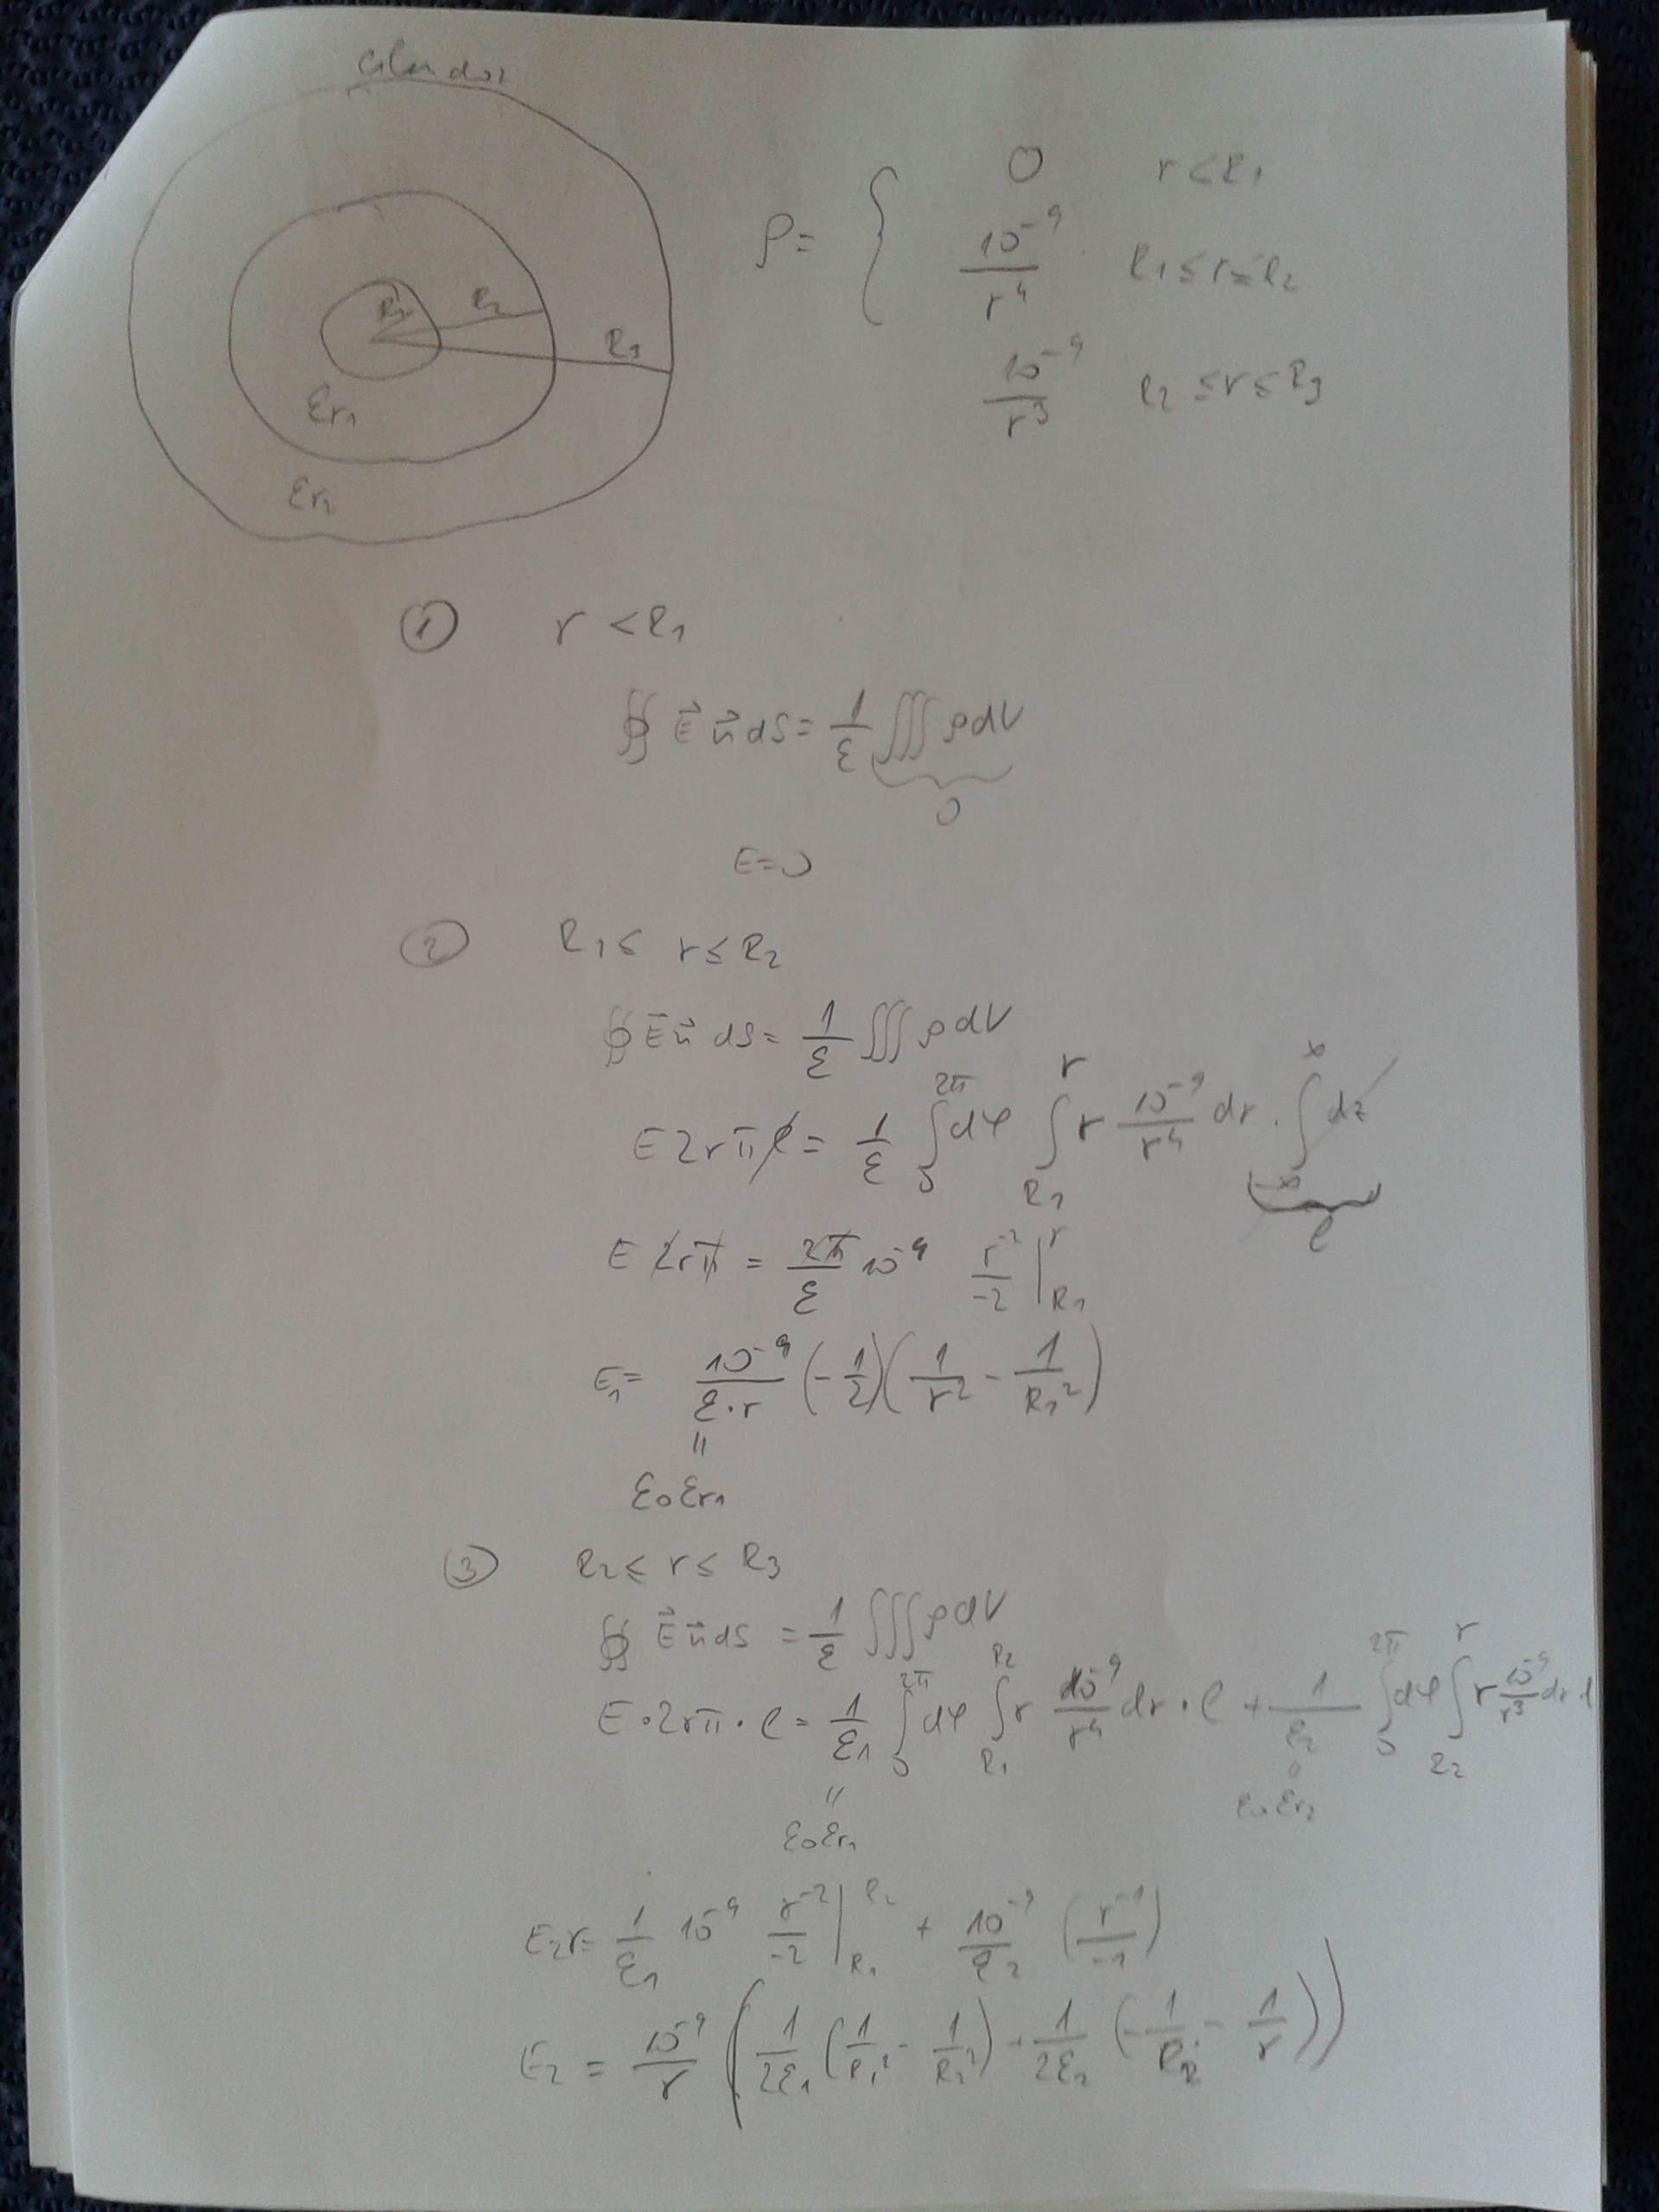 R1 R2 R3
εr1
εr2
ρ = { 0 r < R1
10^-9 / r^4 R1 ≤ r ≤ R2
10^-9 / r^3 R2 ≤ r ≤ R3
① r < R1
∯ E⃗ n⃗ dS = 1/ε ∭ ρdV
0
E=0
② R1 ≤ r ≤ R2
∯ E⃗ n⃗ dS = 1/ε ∭ ρdV
E 2rπ l = 1/ε ∫_0^2π dφ ∫_R1^r r 10^-9/r^4 dr · ∫_-∞^∞ dz
l
E 2rπ = 2π/ε 10^-9 r^-2/-2 |_R1^r
E1 = 10^-9/(ε·r) (-1/2)(1/r^2 - 1/R1^2)
=
ε0 εr1
③ R2 ≤ r ≤ R3
∯ E⃗ n⃗ dS = 1/ε ∭ ρdV
E · 2rπ · l = 1/ε1 ∫_0^2π dφ ∫_R1^R2 r 10^-9/r^4 dr · l + 1/ε2 ∫_0^2π dφ ∫_R2^r r 10^-9/r^3 dr l
= =
ε0 εr1 ε0 εr2
E2r = 1/ε1 10^-9 r^-2/-2 |_R1^R2 + 10^-9/ε2 (r^-1/-1)
E2 = 10^-9/r (1/2ε1 (1/R1^2 - 1/R2^2) + 1/2ε2 (-1/R2 - 1/r))